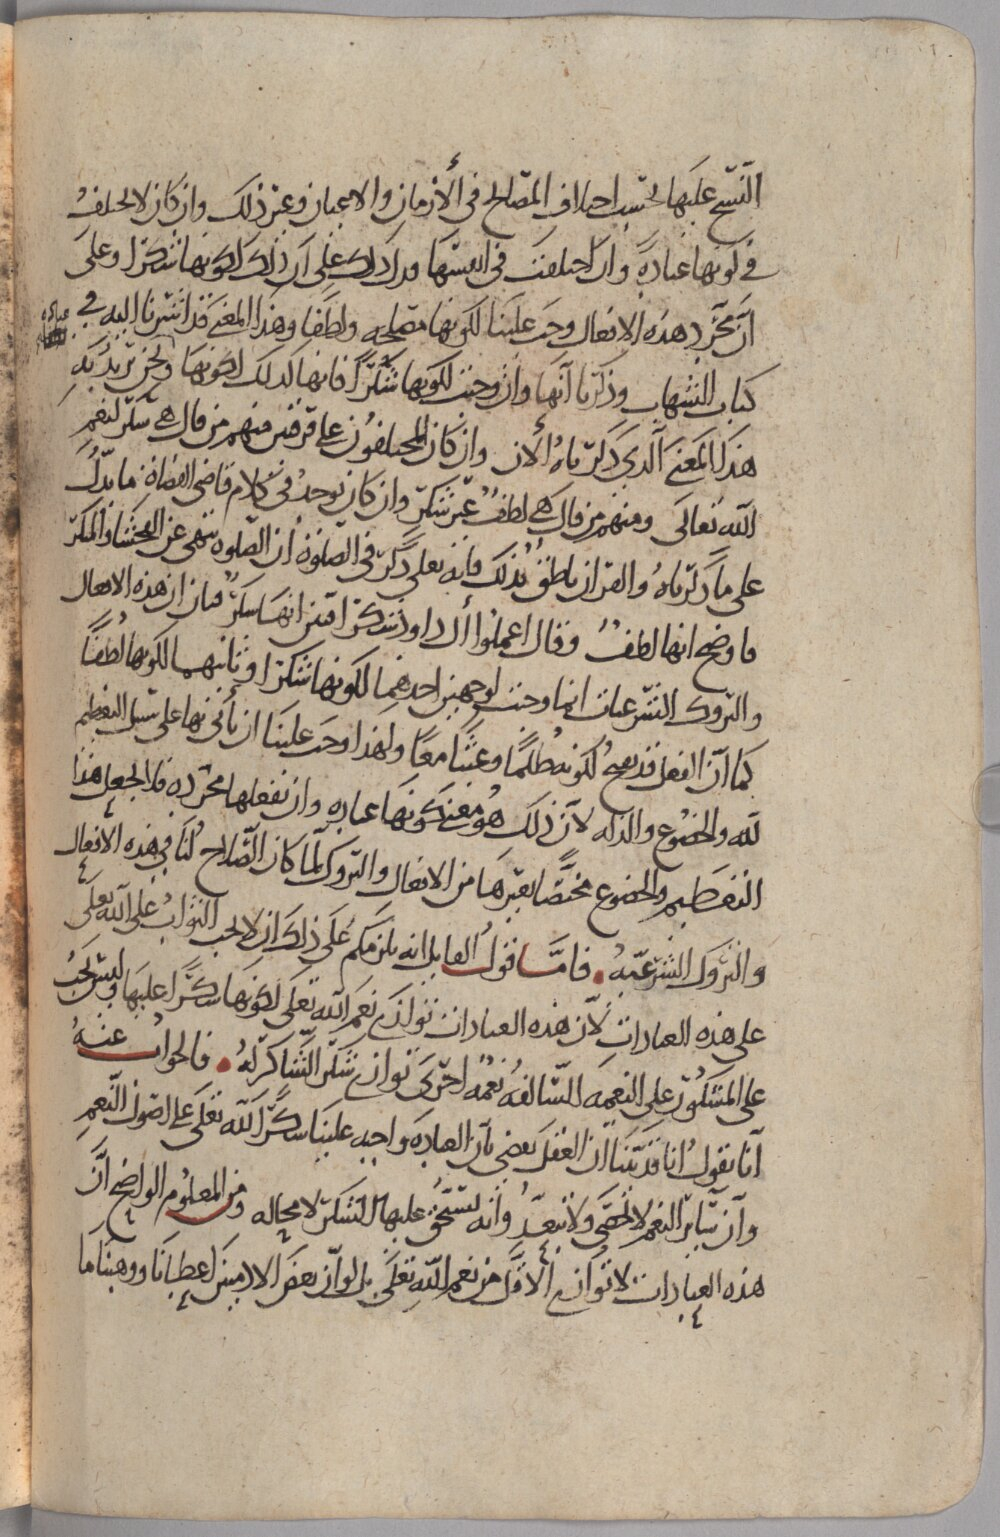 النسخ عليها بحسب اختلاف المصالح في الأزمان والأعيان وغير ذلك وان كان لا يختلف
في كونها عبادة وان اختلفت في انفسها فدل ذلك على ان ذلك لكونها شكرا وعلى
ان تجرد هذه الافعال وجب علينا لكونها مصلحة ولطفا وهذا المعنى قد اشرنا اليه في
كتاب الشهاب وذكرنا أنها وان وجبت لكونها شكرًا فانها كذلك لكونها ونحن نريد به
هذا المعنى الذي ذكرناه الأن وان كان المختلفون على فرقتين فمنهم من قال هي شكر لنعم
الله تعالى ومنهم من قال هي لطف غير شكر وان كان يوجد في كلام قاضي القضاة ما يدل
على ما ذكرناه والقران ناطق بذلك فانه تعلى ذكر في الصلوة ان الصلوة تنهى عن الفحشاء والمنكر
فاوضح انها لطف وقال اعملوا أل داود شكرا فبين انها شكر فبان ان هذه الافعال
والتروك الشرعيات انما وجبت لوجهين احدهما لكونها شكرا وثانيهما لكونها لطفًا
كما أن الفعل قد يقبح لكونه ظلمًا وعبثًا معًا ولهذا وجب علينا ان نأتي بها على سبيل التعظيم
لله والخضوع والذلة لأن ذلك هو معنى كونها عبادة وان نفعلها مجردة فلا نجعل هذا
التعظيم والخضوع مختصًا بغيرها من الافعال والتروك لما كان الصلاح لنا في هذه الافعال
والتروك الشرعية. فاما قول القايل انه يلزمكم على ذلك ان لا يجب الثواب على الله تعلى
على هذه العبادات لأن هذه العبادات توازي نعم الله تعلى لكونها شكرًا عليها وليس يجب
على المشكور على النعمة السالفة نعمة اخرى توازي شكر الشاكر له. فالجواب عنه
أنا نقول انا قد بينا ان العقل يقضي بأن العبادة واجبة علينا شكرًا لله تعلى على اصول النعم
وأن سائر النعم لا تحصى ولا تعد وأنه يستحق عليها الشكر لا محالة ومن المعلوم الواضح أن
هذه العبادات لا توازي الاقل من نعم الله تعلى بل لو أن بعض الادميين اعطانا ووهبنا ما